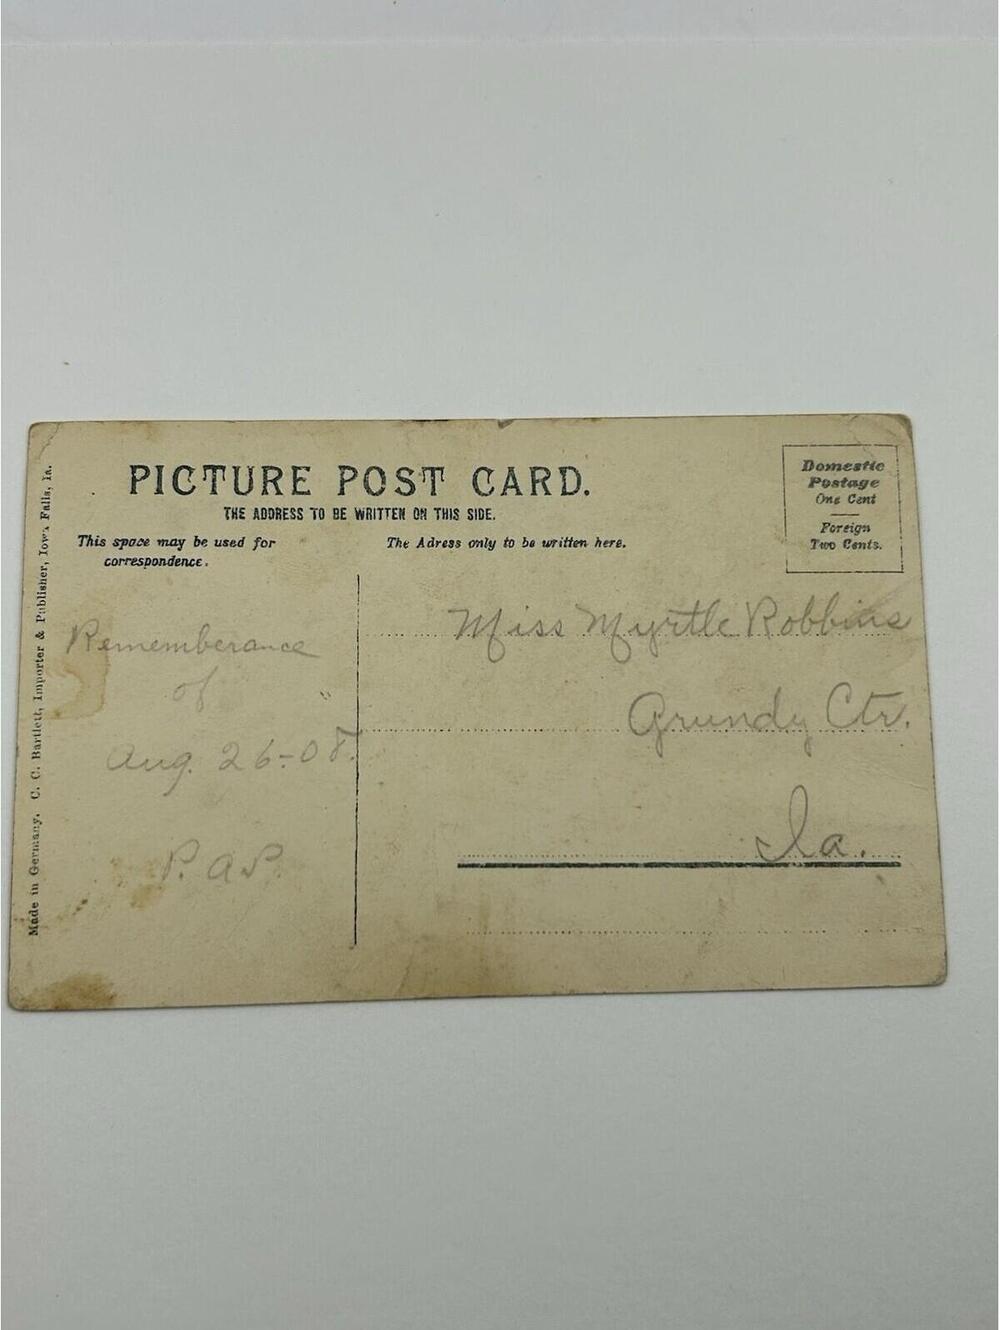 PICTURE POST CARD.
THE ADDRESS TO BE WRITTEN ON THIS SIDE.
This space may be used for
correspondence.
The Adress only to be written here.
Domestic
Postage
One Cent
Foreign
Two Cents.
Made in Germany. C. C. Bartlett, Importer & Publisher, Iowa Falls, Ia.
Rememberance
of
Aug. 26-08.
P. A. P.
Miss Myrtle Robbins
Grundy Ctr.
Ia.